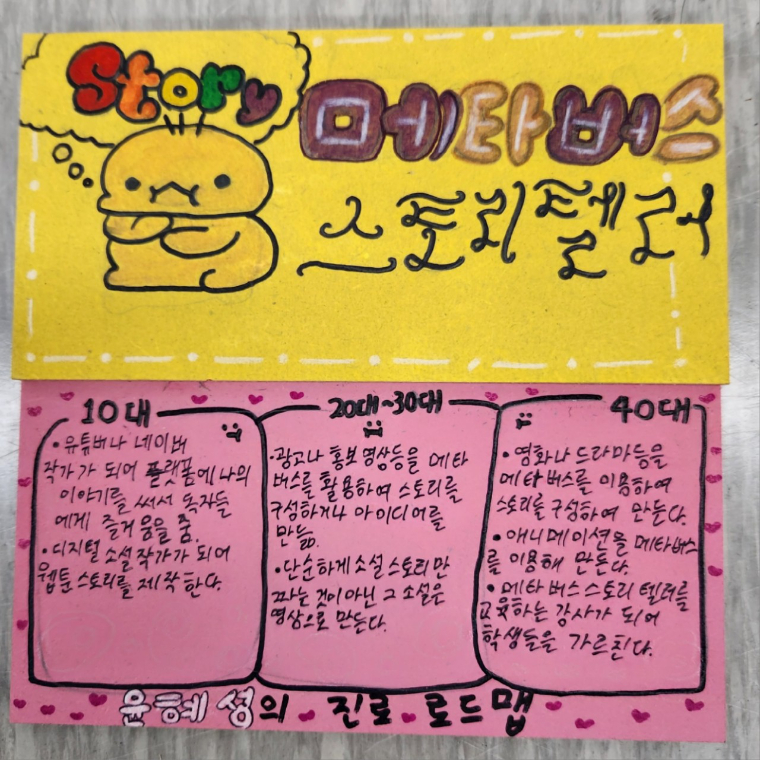 Story
메타버스
스토리텔러
10대
• 유튜버나 네이버
작가가 되어 플랫폼에 나의
이야기를 써서 독자들
에게 즐거움을 줌.
• 디지털 소설 작가가 되어
웹툰 스토리를 제작한다.
20대~30대
• 광고나 홍보 영상등을 메타
버스를 활용하여 스토리를
구성하거나 아이디어를
만듦.
• 단순하게 소설 스토리만
짜는 것이 아닌 그 소설은
영상으로 만든다.
40대
• 영화나 드라마등을
메타버스를 이용하여
스토리를 구성하여 만든다.
• 애니메이션을 메타버스
를 이용해 만든다.
• 메타버스 스토리텔러를
교육하는 강사가 되어
학생들을 가르친다.
윤혜성의 진로 로드맵